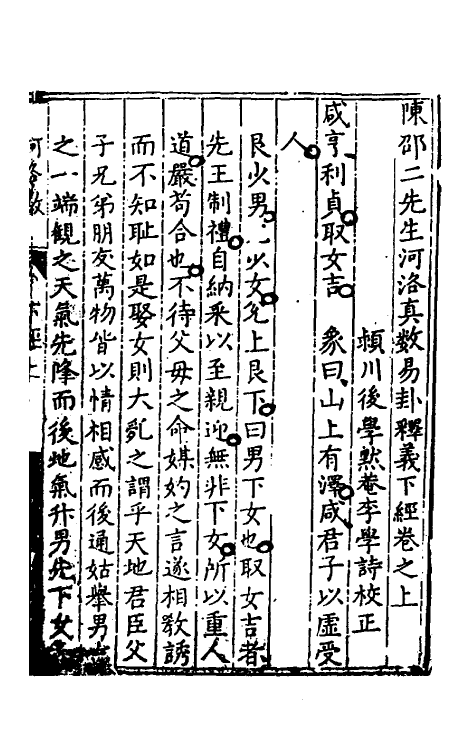 陳邵二先生河洛真數易卦釋義下經卷之上
頴川後學㸃菴李學詩校正
咸亨利貞取女吉 象曰山上有澤咸君子以虛受
人
艮少男兌少女兌上艮下曰男下女也取女吉者
先王制禮自納采以至親迎無非下女所以重人
道嚴苟合也不待父母之命媒妁之言遂相教誘
而不知耻如是娶女則大亂之謂乎天地君臣父
子兄弟朋友萬物皆以情相感而後通姑舉男
之一端觀之天氣先降而後地氣升男先下女